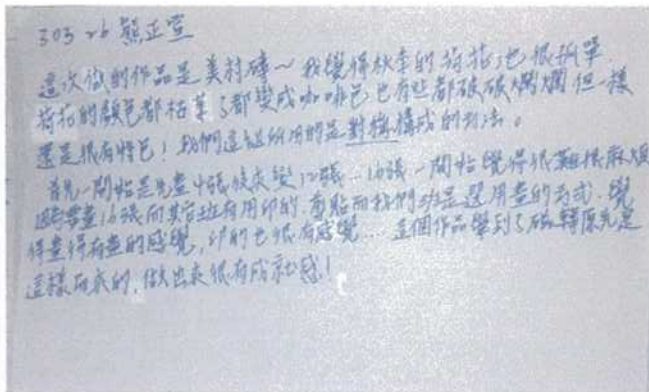 303 26 熊正宣
這次做的作品是美村磚~我覺得秋季的荷花,也很孤單
荷花的顏色都枯萎了都變成咖啡色也有些都破破爛爛但一樣
還是很有特色!我們這組所用的是對稱構成的方法。
首先一開始是先畫4張後來變12張…16張一開始覺得很難很麻煩
還要畫16張而其它班有用印的,剪貼而我們班是選用畫的方式.覺
得畫得有畫的感覺,印的也很有感覺…這個作品學到了磁磚原先是
這樣而來的,做出來很有成就感!